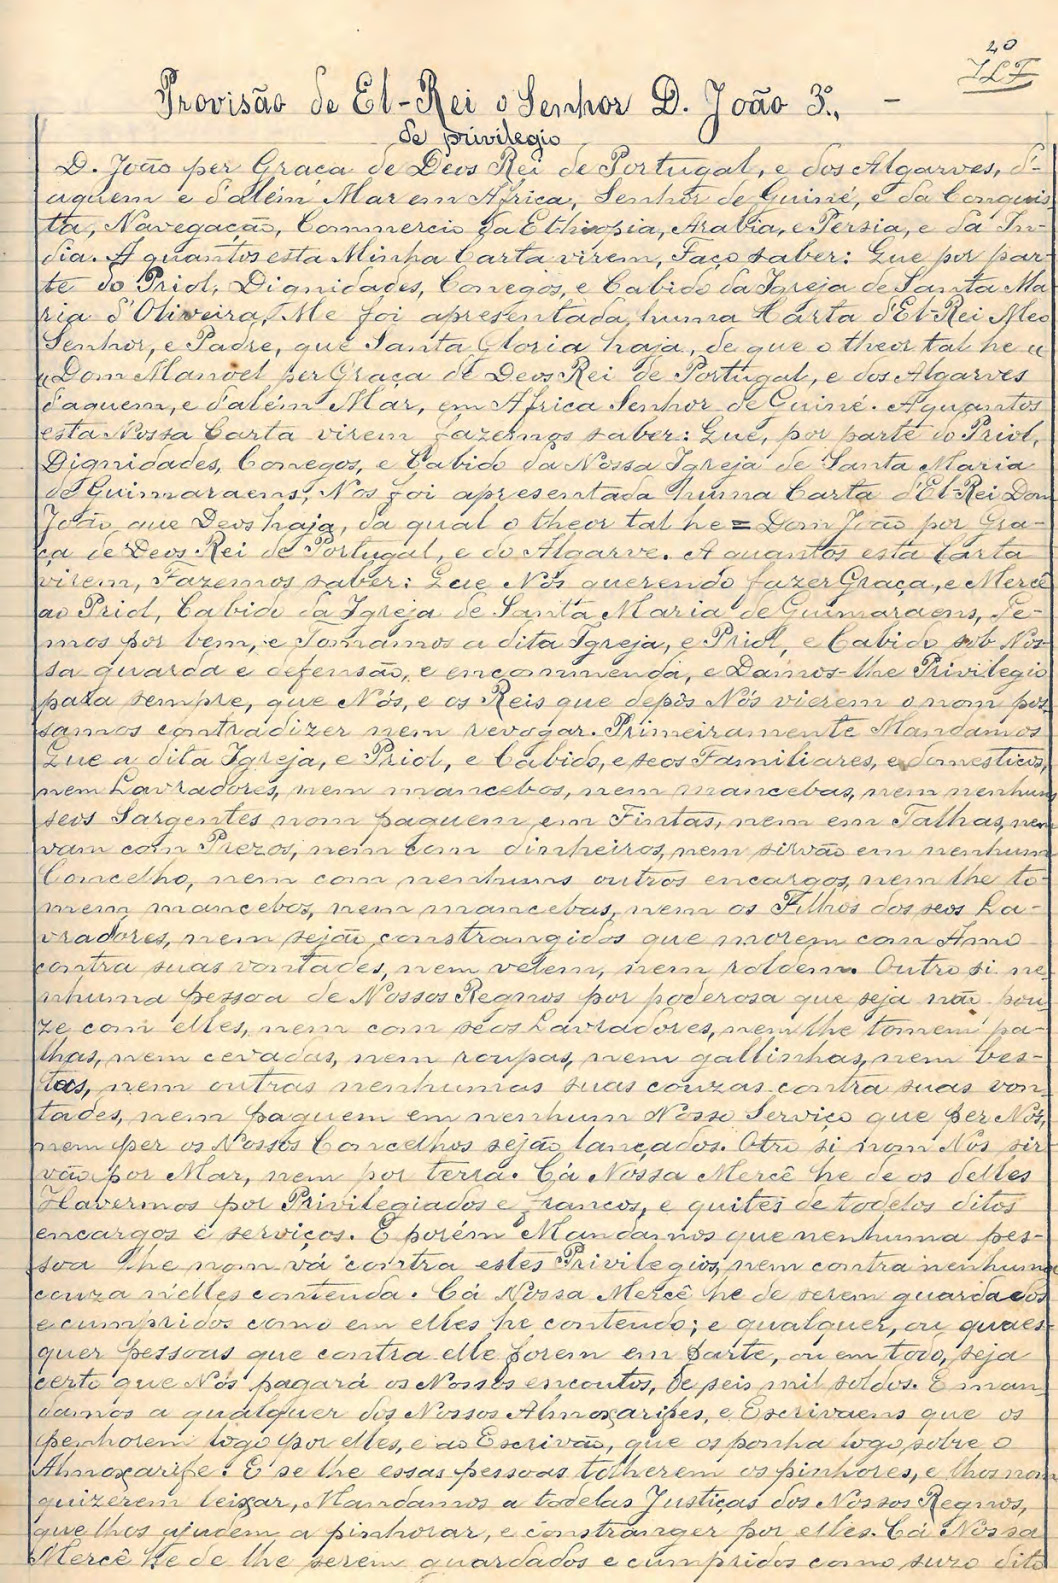 20
JLF
Provisão de El-Rei o Senhor D. João 3º., -
de privilegio
D. João per Graça de Deos Rei de Portugal, e dos Algarves, d'-
aquem e d'além Mar em Africa, Senhor de Guiné, e da Conquis-
ta, Navegação, Commercio da Ethiopia, Arabia, e Persia, e da In-
dia. A quantos esta Minha Carta virem, Faço saber: Que por par-
te do Priol, Dignidades, Conegos, e Cabido da Igreja de Santa Ma-
ria d'Oliveira, Me foi apresentada, huma Carta d'El-Rei Meo
Senhor, e Padre, que Santa Gloria haja, de que o theor tal he
Dom Manoel per Graça de Deos Rei de Portugal, e dos Algarves
d'aquem, e d'além Mar, em Africa Senhor de Guiné. A quantos
esta Nossa Carta virem fazemos saber: Que, por parte do Priol,
Dignidades, Conegos, e Cabido da Nossa Igreja de Santa Maria
de Guimaraens, Nos foi apresentada huma Carta d'El-Rei Dom
João, que Deos haja, da qual o theor tal he = Dom João por Gra-
ça de Deos Rei de Portugal, e do Algarve. A quantos esta Carta
virem, Fazemos saber: Que Nós querendo fazer Graça, e Mercê
ao Priol, Cabido da Igreja de Santa Maria de Guimaraens, Te-
mos por bem, e Tomâmos a dita Igreja, e Priol, e Cabido sob Nos-
sa guarda e defensão, e encommenda, e Damos-lhe Privilegio
para sempre, que Nós, e os Reis que depós Nós vierem o nom pos-
samos contradizer nem revogar. Primeiramente Mandamos
Que a dita Igreja, e Priol, e Cabido, e seos Familiares, e domesticos,
nem Lavradores, nem mancebos, nem mancebas, nem nenhuns
seos Sargentes nom paguem em Fintas, nem em Talhas, nem
vam com Prezos, nem com dinheiros, nem sirvão em nenhum
Concelho, nem com nenhuns outros encargos, nem lhe to-
mem mancebos, nem mancebas, nem os Filhos dos seos La-
vradores, nem sejão constrangidos que morem com Amo
contra suas vontades, nem velem, nem roldem. Outro si ne-
nhuma pessoa de Nossos Regnos por poderosa que seja não pou-
ze com elles, nem com seos Lavradores, nem lhe tomem pa-
lhas, nem cevadas, nem roupas, nem gallinhas, nem bes-
tas, nem outras nenhumas suas couzas contra suas von
tades, nem paguem em nenhum Nosso Serviço que per Nós,
nem per os Nossos Concelhos sejão lançados. Otro si nom Nos sir-
vão por Mar, nem por terra. Cá Nossa Mercê he de os delles
Havermos por Privilegiados e francos, e quites de todolos ditos
encargos e serviços. E porém Mandamos que nenhuma pes-
soa lhe nom vá contra estes Privilegios, nem contra nenhuma
couza n'elles contenda. Cá Nossa Mercê he de serem guardados
e cumpridos como em elles he contendo; e qualquer, ou quaes-
quer pessoas que contra elle forem em parte, ou em todo, seja
certo que Nós pagará os Nossos encoutos, de seis mil soldos. E man-
damos a qualquer dos Nossos Almoxarifes, e Escrivaens que os
penhorem logo por elles, e ao Escrivão, que os ponha logo sobre o
Almoxarife. E se lhe essas pessoas tolherem os pinhores, e lhos nom
quizerem leixar, Mandamos a todolas Justiças dos Nossos Regnos,
que lhos ajudem a pinhorar, e constranger por elles. Cá Nossa
Mercê he de lhe serem guardados e cumpridos como suzo dito